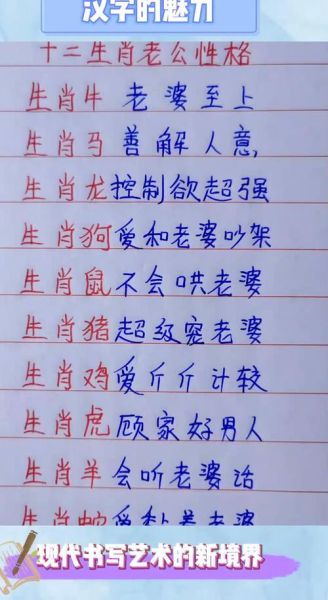 汉字的魅力
十二生肖老公性格
生肖牛 老婆至上
生肖马 善解人意,
生肖龙控制欲超强
生肖狗爱和老婆吵架
生肖鼠不会哄老婆
生肖猪超级宠老婆
生肖鸡爱斤斤计较
生肖虎 顾家好男人
生肖羊 会听老婆话
生肖蛇爱黏着老婆
现代书写艺术的新境界